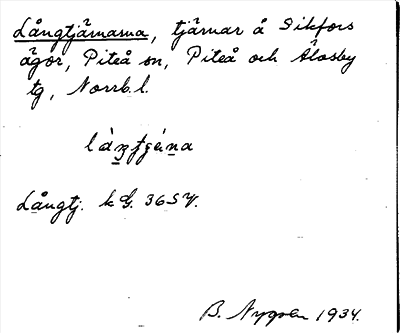 Långtjärnarna, tjärnar å Sikfors
ägor, Piteå sn, Piteå och Älvsby
tg, Norrb. l.
Långtj. k G. 36 SV.
B. Nygren 1934.